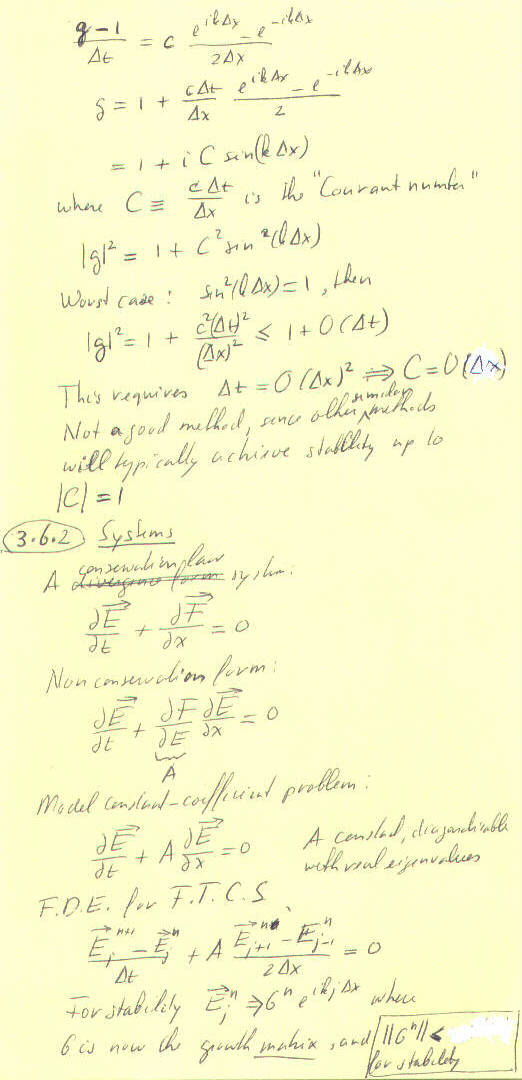 g-1/Δt = c (e^{ikΔx} - e^{-ikΔx})/2Δx
g = 1 + cΔt/Δx (e^{ikΔx} - e^{-ikΔx})/2
= 1 + i C sin(kΔx)
where C ≡ cΔt/Δx is the "Courant number"
|g|² = 1 + C² sin²(kΔx)
Worst case: sin²(kΔx) = 1, then
|g|² = 1 + c²(Δt)²/(Δx)² ≤ 1 + O(Δt)
This requires Δt = O(Δx)² ⟹ C = O(Δx)
Not a good method, since other similar methods
will typically achieve stability up to
|C| = 1
3.6.2 Systems
A conservation law system:
∂E⃗/∂t + ∂F⃗/∂x = 0
Non conservation form:
∂E⃗/∂t + ∂F/∂E ∂E⃗/∂x = 0
A
Model constant-coefficient problem:
∂E⃗/∂t + A ∂E⃗/∂x = 0 A constant, diagonalizable
with real eigenvalues
F.D.E. for F.T.C.S.
(E⃗_j^{n+1} - E⃗_j^n)/Δt + A (E⃗_{j+1}^n - E⃗_{j-1}^n)/2Δx = 0
For stability E⃗_j^n ⇒ G^n e^{ikjΔx} where
G is now the growth matrix, and ||G^n|| <
for stability